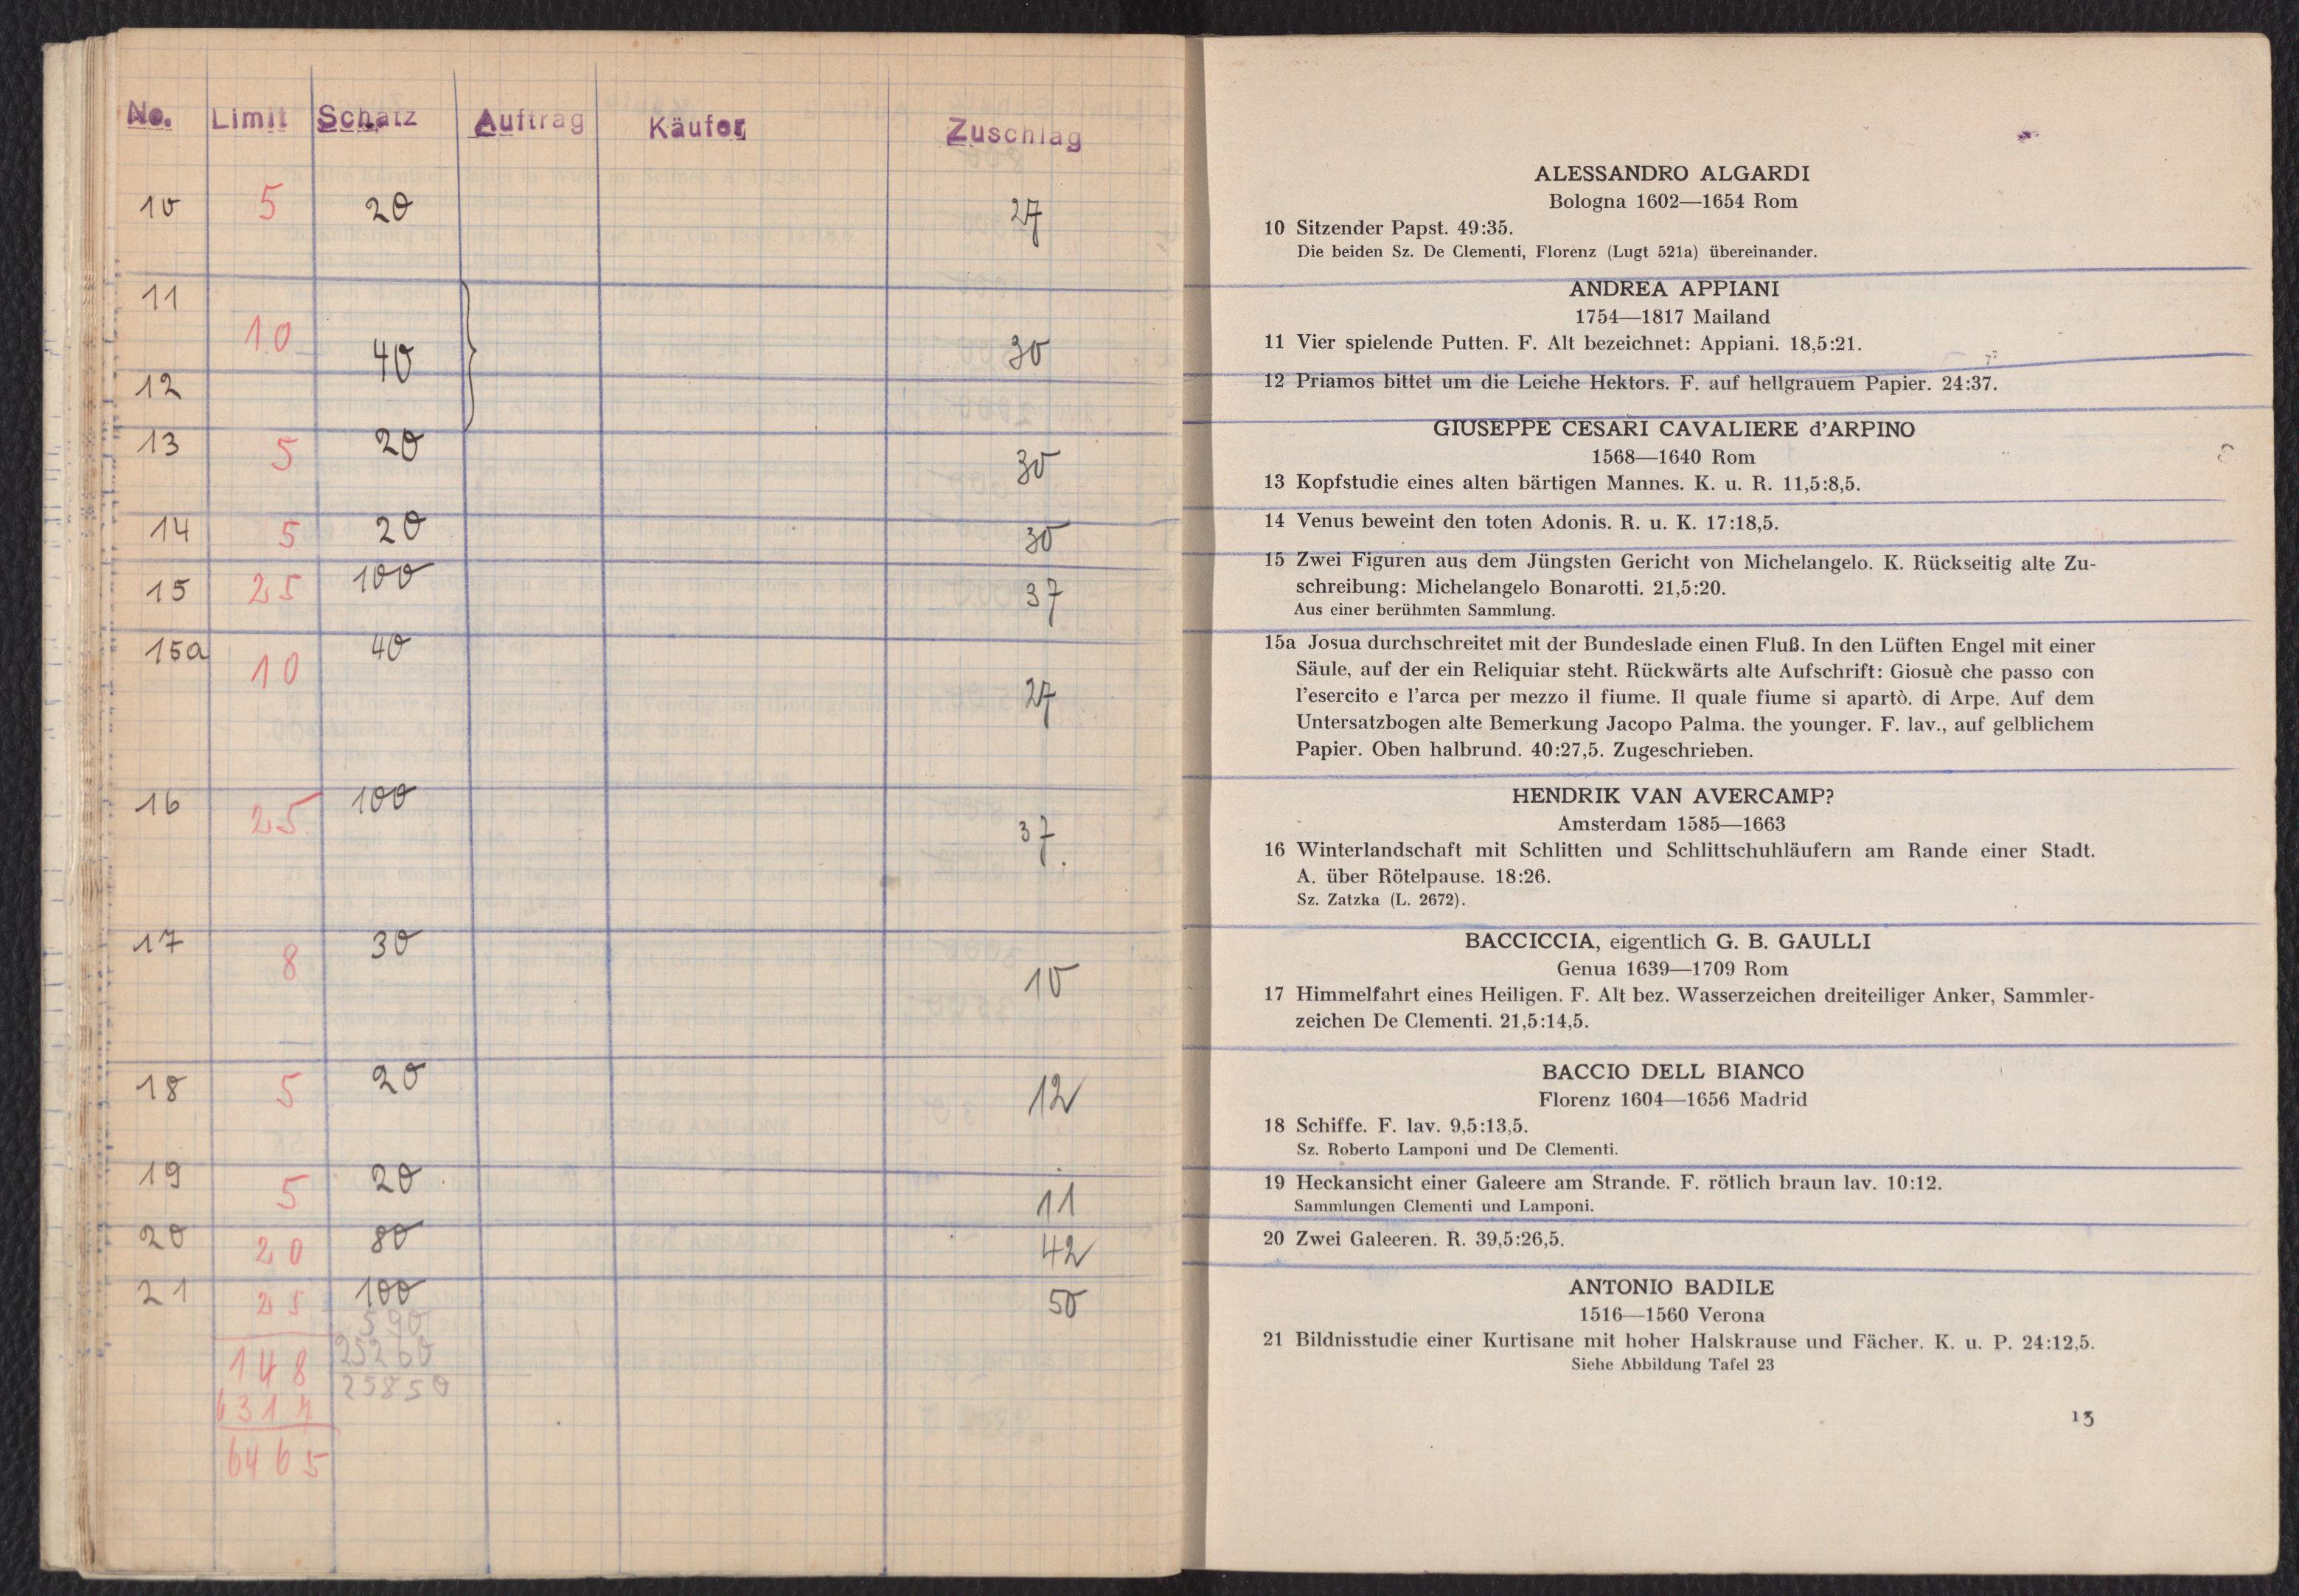 No. Limit Schatz Auftrag Käufer Zuschlag
10 5 20 27
11
10 40 30
12
13 5 20 30
14 5 20 30
15 25 100 37
15a 10 40 27
16 25 100 37.
17 8 30 10
18 5 20 12
19 5 20 11
20 20 80 42
21 25 100 50
590
148 25260
25850
6317
6465
ALESSANDRO ALGARDI
Bologna 1602—1654 Rom
10 Sitzender Papst. 49:35.
Die beiden Sz. De Clementi, Florenz (Lugt 521a) übereinander.
ANDREA APPIANI
1754—1817 Mailand
11 Vier spielende Putten. F. Alt bezeichnet: Appiani. 18,5:21.
12 Priamos bittet um die Leiche Hektors. F. auf hellgrauem Papier. 24:37.
GIUSEPPE CESARI CAVALIERE d'ARPINO
1568—1640 Rom
13 Kopfstudie eines alten bärtigen Mannes. K. u. R. 11,5:8,5.
14 Venus beweint den toten Adonis. R. u. K. 17:18,5.
15 Zwei Figuren aus dem Jüngsten Gericht von Michelangelo. K. Rückseitig alte Zu-
schreibung: Michelangelo Bonarotti. 21,5:20.
Aus einer berühmten Sammlung.
15a Josua durchschreitet mit der Bundeslade einen Fluß. In den Lüften Engel mit einer
Säule, auf der ein Reliquiar steht. Rückwärts alte Aufschrift: Giosuè che passo con
l'esercito e l'arca per mezzo il fiume. Il quale fiume si apartò. di Arpe. Auf dem
Untersatzbogen alte Bemerkung Jacopo Palma. the younger. F. lav., auf gelblichem
Papier. Oben halbrund. 40:27,5. Zugeschrieben.
HENDRIK VAN AVERCAMP?
Amsterdam 1585—1663
16 Winterlandschaft mit Schlitten und Schlittschuhläufern am Rande einer Stadt.
A. über Rötelpause. 18:26.
Sz. Zatzka (L. 2672).
BACCICCIA, eigentlich G. B. GAULLI
Genua 1639—1709 Rom
17 Himmelfahrt eines Heiligen. F. Alt bez. Wasserzeichen dreiteiliger Anker, Sammler-
zeichen De Clementi. 21,5:14,5.
BACCIO DELL BIANCO
Florenz 1604—1656 Madrid
18 Schiffe. F. lav. 9,5:13,5.
Sz. Roberto Lamponi und De Clementi.
19 Heckansicht einer Galeere am Strande. F. rötlich braun lav. 10:12.
Sammlungen Clementi und Lamponi.
20 Zwei Galeeren. R. 39,5:26,5.
ANTONIO BADILE
1516—1560 Verona
21 Bildnisstudie einer Kurtisane mit hoher Halskrause und Fächer. K. u. P. 24:12,5.
Siehe Abbildung Tafel 23
13